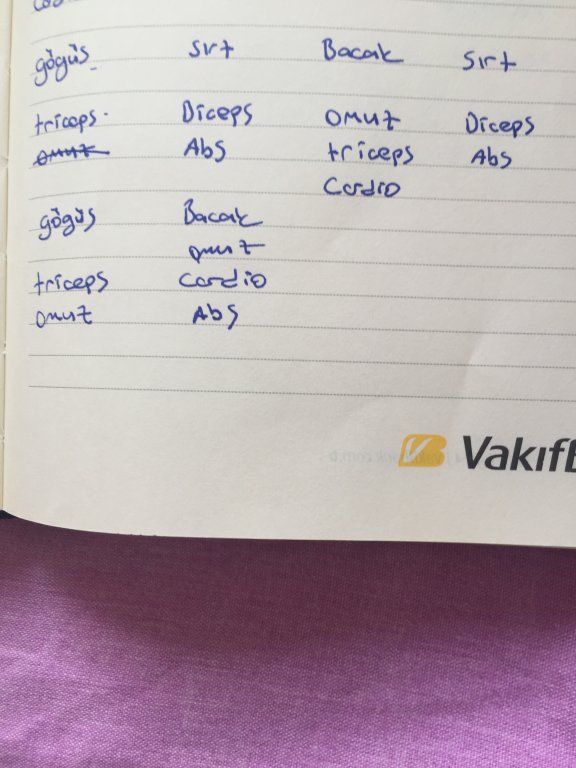 göğüs sırt Bacak sırt
triceps Biceps omuz Biceps
omuz Abs triceps Abs
Cardio
göğüs Bacak
omuz
triceps Cardio
omuz Abs
VakıfB